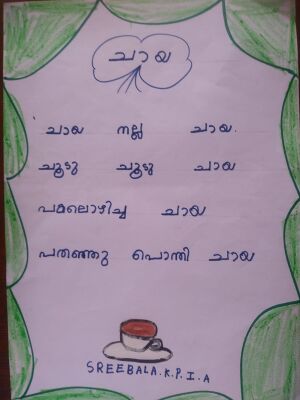 ചായ
ചായ നല്ല ചായ.
ചൂടു ചൂടു ചായ
പമലൊഴിച്ച ചായ
പതഞ്ഞു പൊന്തി ചായ
SREEBALA.K.P. I.A